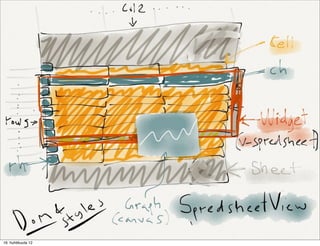 Col2
Cell
ch
rows
Widget
(v-spredsheet)
rh
Sheet
Dom &
styles
Graph
(canvas)
SpredsheetView
huhtikuuta 12